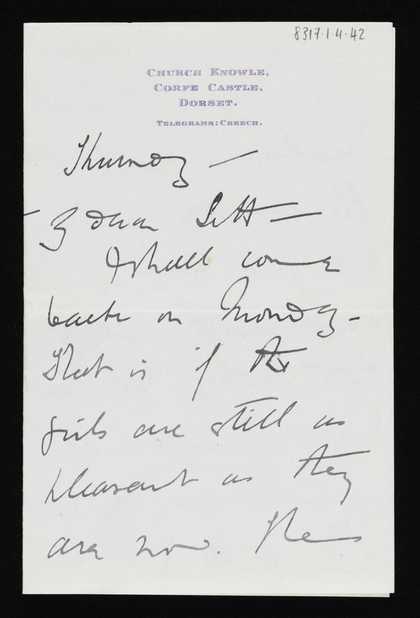 8317.1.4.42
CHURCH KNOWLE,
CORFE CASTLE,
DORSET.
TELEGRAMS: CREECH.
Thursday —
My dear
I shall come
back on Monday —
That is if the
girls are still as
pleasant as they
are now.